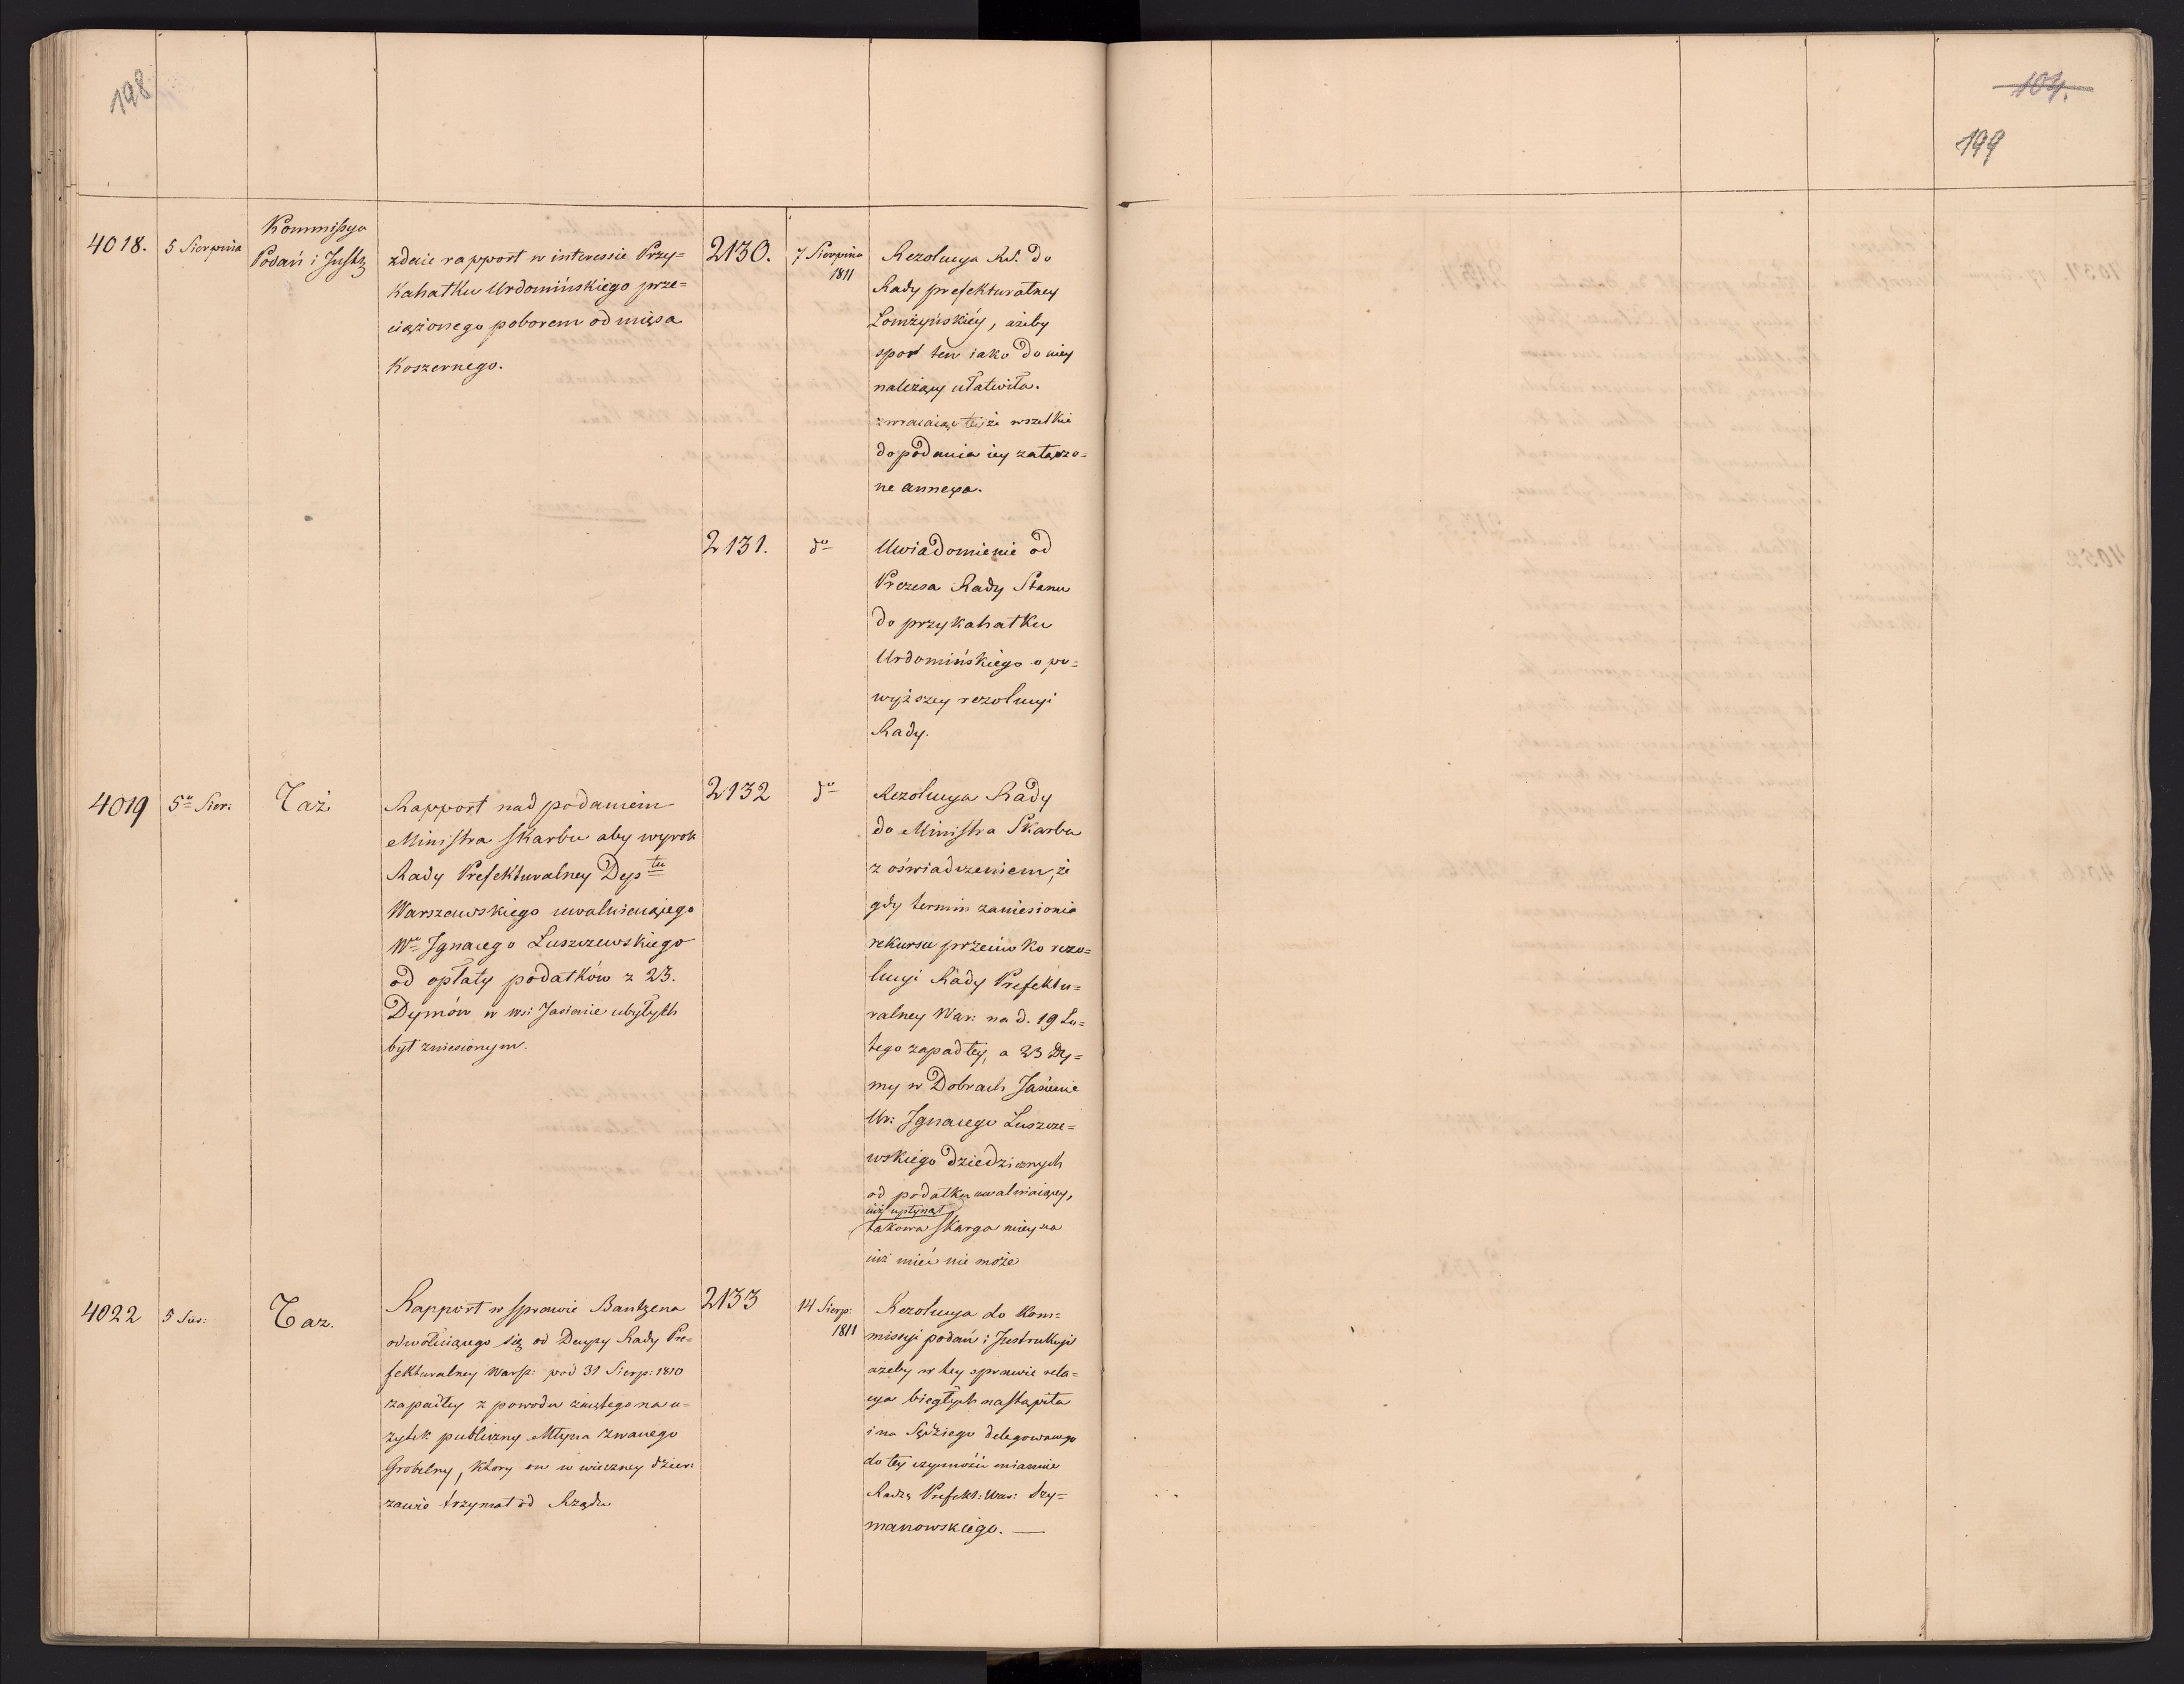 198
104.
199
Kommissya
4018. 5 Sierpnia Podań i Instr
zdaie rapport w interessie Przy=
Kahałku Urdomińskiego prze=
ciążonego poborem od mięsa
Koszernego.
2130. 7 Sierpnia
1811
Rezolucya Rd. do
Rady prefekturalney
Łomżyńskiéy, ażeby
spor ten iako do niey
należący ułatwiła.
zwracaiąc teyże wszelkie
do podania iey załączo=
ne annexa.
2131. do
Uwiadomienie od
Prezesa Rady Stanu
do przykahałku
Urdomińskiego o po=
wyższey rezolucyi
Rady.
4019 5o Sier: Taż
Rapport nad podaniem
Ministra Skarbu aby wyrok
Rady Prefekturalney Depttu
Warszawskiego uwalniaiącego
Wo Ignacego Łuszczewskiego
od opłaty podatków z 23.
Dymów w wsi Jasienie ubyłych
był zniesionym.
2132 do
Rezolucya Rady
do Ministra Skarbu
z oświadczeniem, że
gdy termin zaniesienia
rekursu przeciwko rezo=
lucyi Rady Prefektu=
ralney War: na d. 19 Lu=
tego zapadłey, a 23 Dy=
my w Dobrach Jasienie
Ur: Ignacego Łuszcze=
wskiego dziedzicznych
od podatku uwalniaiącey,
iuż upłynął
takowa skarga mieysca
iuż mieć nie może
4022 5 Sier: Taz.
Rapport w sprawie Bantzena
odwołuiącego się od Decyzy Rady Pre=
fekturalney Warsz: pod 31 Sierp: 1810
zapadłey z powodu zaiętego na u=
żytek publiczny Młyna zwanego
Grobelny, ktory on w wieczney dzier:
zawie trzymał od Rządu
2133 14 Sierp:
1811
Rezolucya do Kom=
missyi podań i Instrukcyi
ażeby w tey sprawie rela=
cya biegłych nastąpiła
i na Sędziego delegowanego
do tey czynności mianuie
Radzę Prefekt: War: Szy=
manowskiego. —